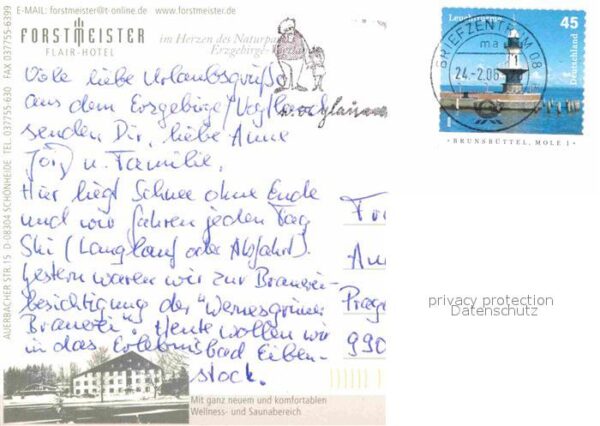 E-MAIL: forstmeister@t-online.de www.forstmeister.de
FORSTMEISTER
FLAIR-HOTEL
im Herzen des Naturparks
Erzgebirge-
AUERBACHER STR. 15 D-08304 SCHÖNHEIDE TEL. 037755-630 FAX 037755-6399
Viele liebe Urlaubsgrüße
aus dem Erzgebirge/Vogtland
senden Dir, liebe Anne
Jörg u. Familie.
Hier liegt Schnee ohne Ende
und wir fahren jeden Tag
Ski (Langlauf oder Abfahrt).
Gestern waren wir zur Brauerei-
besichtigung der "Wernesgrüner
Brauerei". Heute wollen wir
in das Erlebnisbad Eiben-
stock.
Mit ganz neuem und komfortablen
Wellness- und Saunabereich
BRIEFZENTRUM 08
ma
24.-2.06
Leuchttürme
45
Deutschland
BRUNSBÜTTEL, MOLE 1
privacy protection
Datenschutz
990